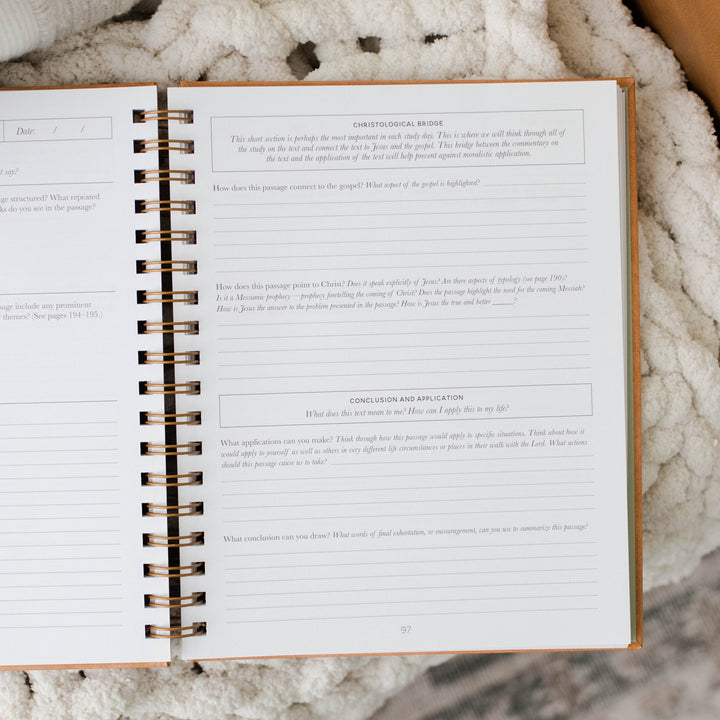 Date: / /
t say?
ge structured? What repeated
ks do you see in the passage?
sage include any prominent
themes? (See pages 194–195.)
CHRISTOLOGICAL BRIDGE
This short section is perhaps the most important in each study day. This is where we will think through all of
the study on the text and connect the text to Jesus and the gospel. This bridge between the commentary on
the text and the application of the text will help prevent against moralistic application.
How does this passage connect to the gospel? What aspect of the gospel is highlighted?
How does this passage point to Christ? Does it speak explicitly of Jesus? Are there aspects of typology (see page 190)?
Is it a Messianic prophecy— prophecy foretelling the coming of Christ? Does the passage highlight the need for the coming Messiah?
How is Jesus the answer to the problem presented in the passage? How is Jesus the true and better _____?
CONCLUSION AND APPLICATION
What does this text mean to me? How can I apply this to my life?
What applications can you make? Think through how this passage would apply to specific situations. Think about how it
would apply to yourself as well as others in very different life circumstances or places in their walk with the Lord. What actions
should this passage cause us to take?
What conclusion can you draw? What words of final exhortation, or encouragement, can you use to summarize this passage?
97